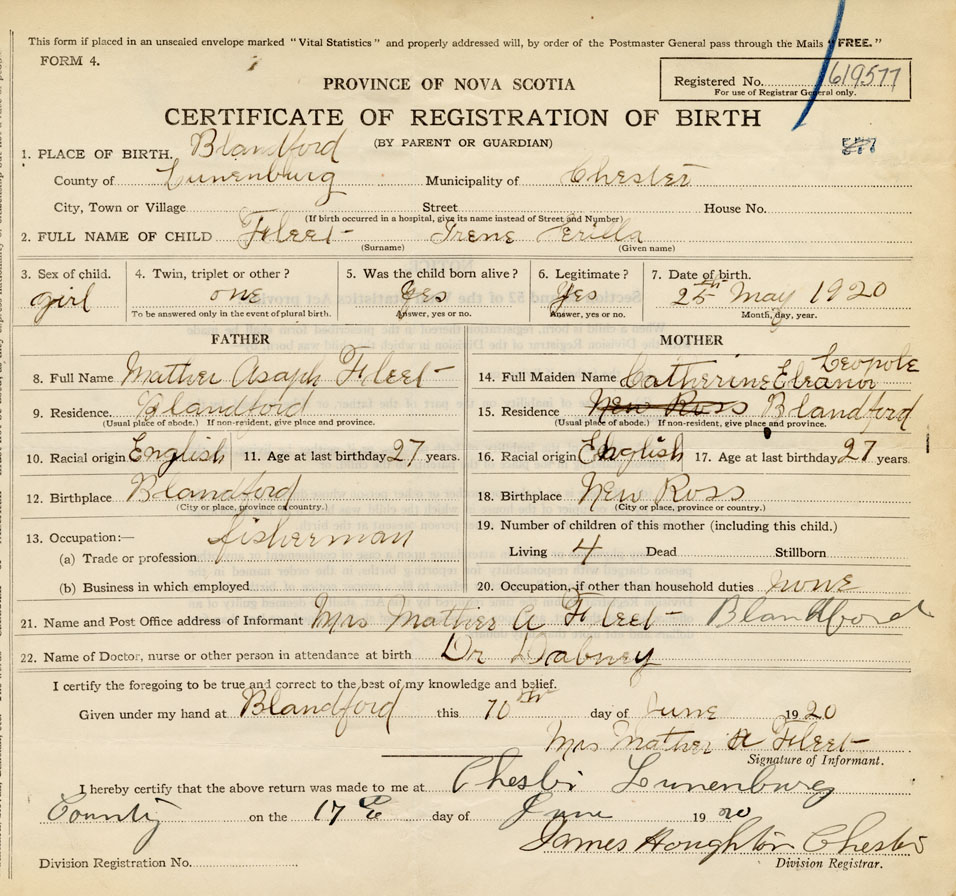 This form if placed in an unsealed envelope marked "Vital Statistics" and properly addressed will, by order of the Postmaster General pass through the Mails "FREE."
FORM 4.
PROVINCE OF NOVA SCOTIA
Registered No. 619577
For use of Registrar General only.
CERTIFICATE OF REGISTRATION OF BIRTH
(BY PARENT OR GUARDIAN)
1. PLACE OF BIRTH. Blandford
County of Lunenburg Municipality of Chester
City, Town or Village Street House No.
(If birth occurred in a hospital, give its name instead of Street and Number)
2. FULL NAME OF CHILD Fleet Irene Erilla
(Surname) (Given name)
3. Sex of child. 4. Twin, triplet or other? 5. Was the child born alive? 6. Legitimate? 7. Date of birth.
girl one Yes Yes 25th May 1920
To be answered only in the event of plural birth. Answer, yes or no. Answer, yes or no. Month, day, year.
FATHER MOTHER
8. Full Name Mather Asaph Fleet 14. Full Maiden Name Catherine Eleanor Leopole
9. Residence. Blandford 15. Residence New Ross Blandford
(Usual place of abode.) If non-resident, give place and province. (Usual place of abode.) If non-resident, give place and province.
10. Racial origin English 11. Age at last birthday 27 years. 16. Racial origin English 17. Age at last birthday 27 years.
12. Birthplace Blandford 18. Birthplace New Ross
(City or place, province or country.) (City or place, province or country.)
13. Occupation:— fisherman 19. Number of children of this mother (including this child.)
(a) Trade or profession Living 4 Dead Stillborn
(b) Business in which employed 20. Occupation, if other than household duties none
21. Name and Post Office address of Informant Mrs Mather A Fleet Blandford
22. Name of Doctor, nurse or other person in attendance at birth Dr Dabney
I certify the foregoing to be true and correct to the best of my knowledge and belief.
Given under my hand at Blandford this 10th day of June 1920
Mrs Mather A Fleet
Signature of Informant.
I hereby certify that the above return was made to me at Chester Lunenburg
County on the 17 day of June 1920
James Houghton Chester
Division Registration No. Division Registrar.